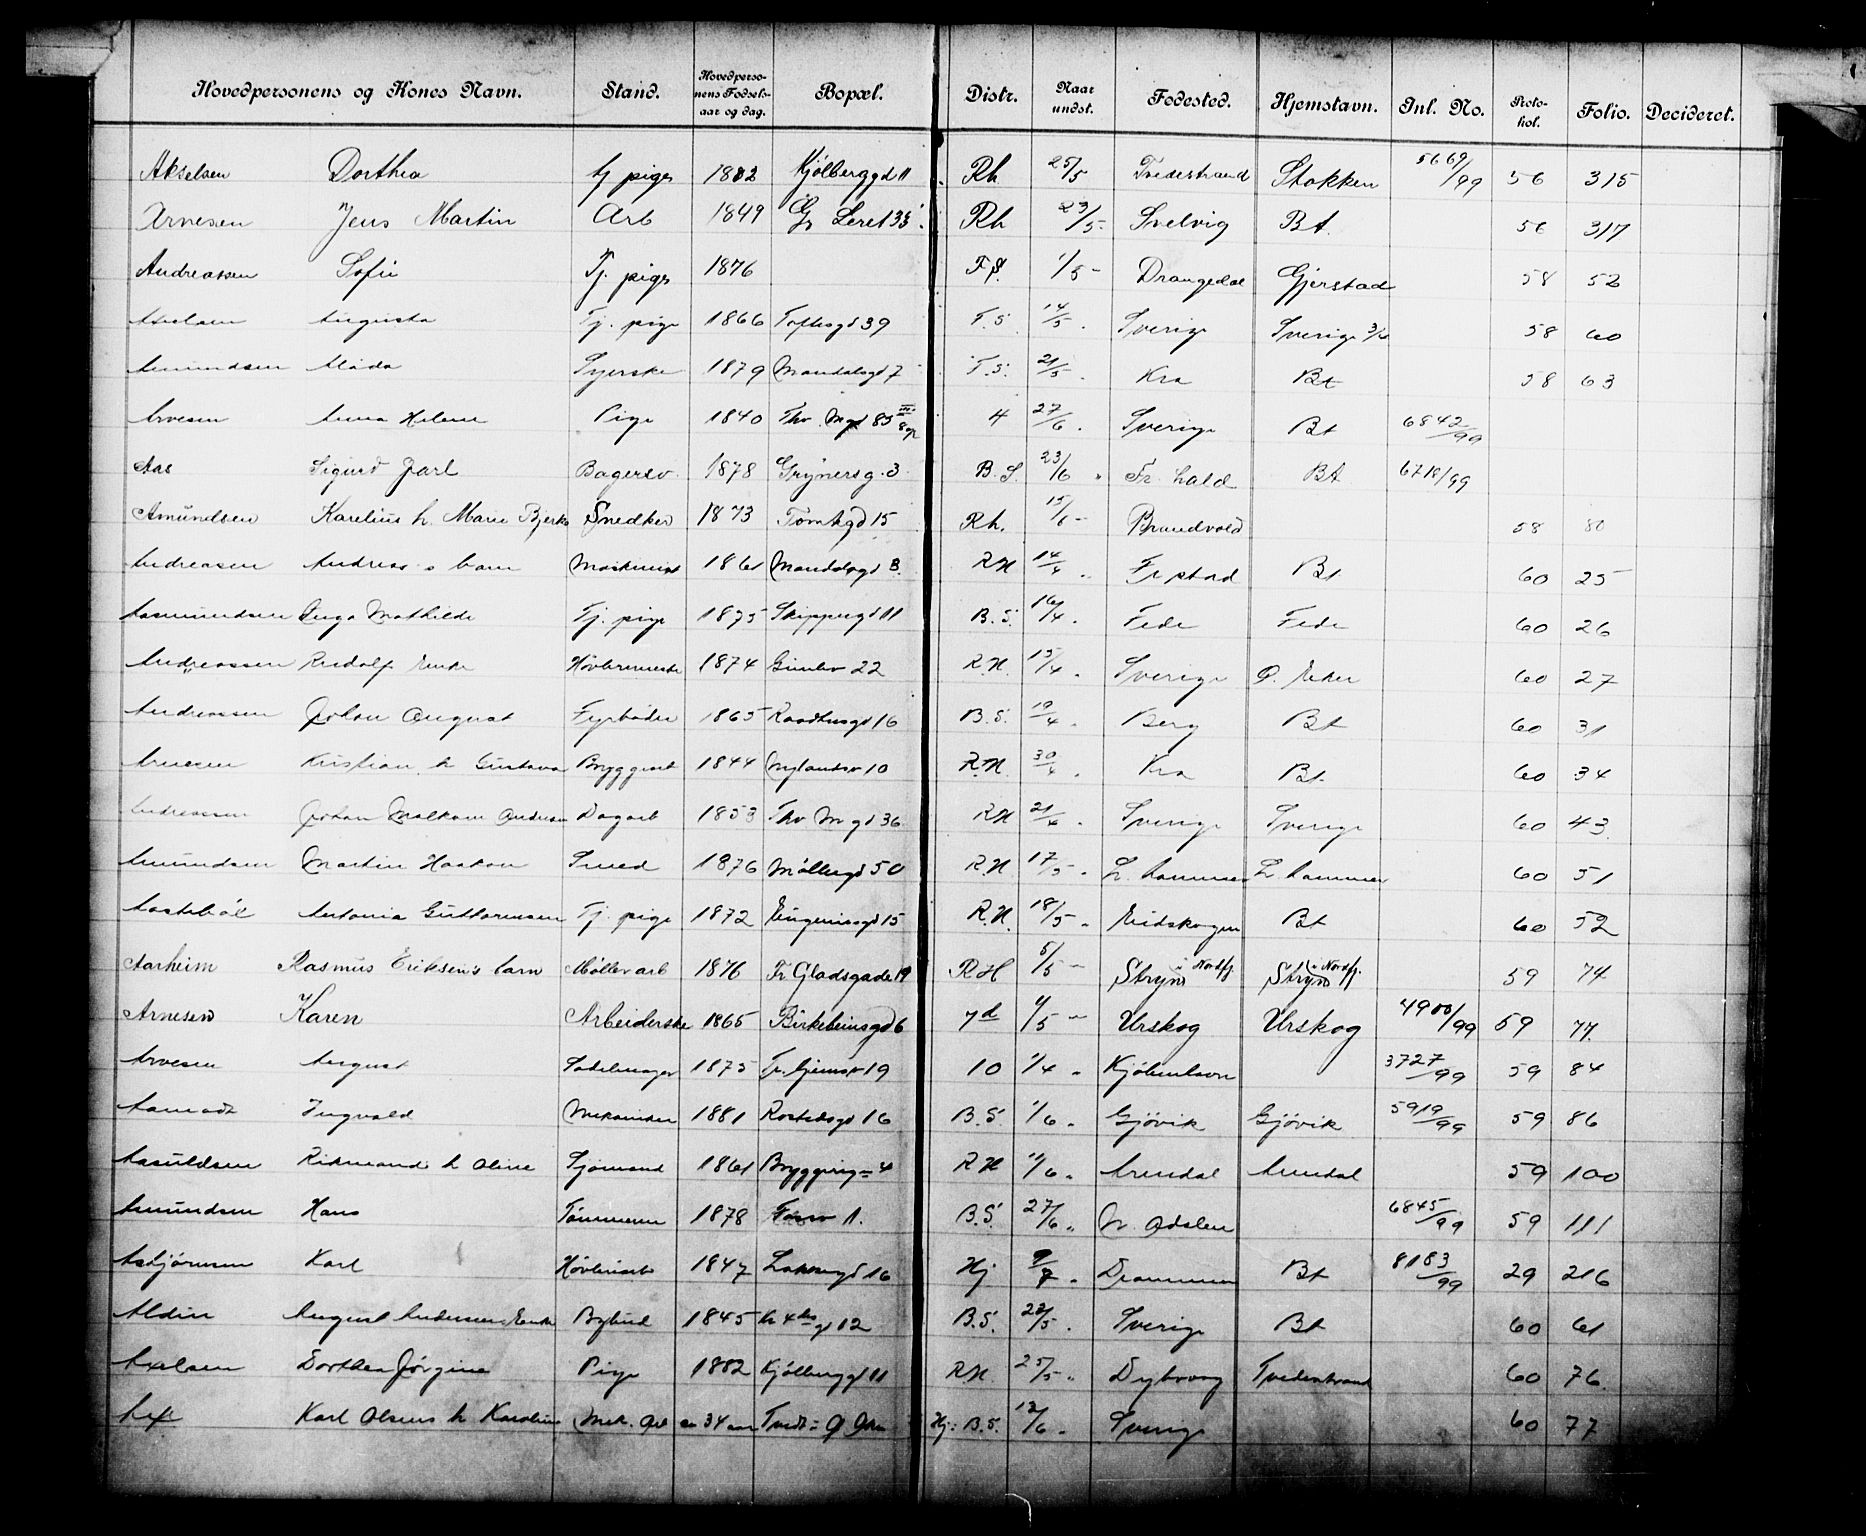 Hovedpersonens og Kones Navn. Stand. Hovedperso-nens Fødsels-aar og dag. Bopæl. Distr. Naar undst. Fødested. Hjemstavn. Inl. No. Proto-kol. Folio. Decideret.
Akselsen Dorthea tj pige 1882 Kjølberggd 11 Rh 25/5 Tvedestrand Stokken 5669/99 56 315
Arnesen Jens Martin Arb 1849 Gr Leret 35 Rh 23/5 Svelvig Bt. 56 317
Andreassen Sofie Tj. pige 1876 1/5 Drangedal Gjerstad 58 52
Augusta Tj. pige 1866 Toftesgd 39 T.S. 14/5 Sverige Sverige 58 60
Amundsen Syerske 1879 Mandalsgd 7 T.S. 21/5 Kra Bt 58 63
Arvesen Anna Helene Pige 1840 Thv. Mgd 83 4 27/6 Sverige Bt 6842/99
Aas Sigurd Jarl Bagersv. 1878 Grünersg. 3 B.S. 23/6 Fr. hald Bt
Amundsen Karelius h. Marie Bjerke Snedker 1873 Tomtegd 15 Rh. 15/6 Brandvold 58 80
Andreasen Andreas's barn Maskinist 1861 Mandalsgd 3. RH 14/4 Fr stad Bt 60 25
Aasmundsen Inga Mathilde Tj. pige 1875 Skippergd 11 B.S. 16/4 Fede Fede 60 26
Andreassen Rudolf Enke 1874 Gimlev 22 R.H. 15/4 Sverige Ø. Eker 60 27
Andreassen Johan August Fyrbøder 1865 Raadhusgd 16 B.S. 19/4 Berg Bt 60 31
Arnesen Kristian h Gustava Bryggearb 1844 Nylandsv 10 R.H. 30/4 Kra Bt 60 34
Andreassen Johan Dagarb 1853 Thv M gd 36 RH 21/4 Sverige Sverige 60 43.
Amundsen Martin Haakon Smed 1876 Møllergd 50 R.H. 17/5 L. hammer L. hammer 60 51
Aastebøl Antonia Guttormsen Tj. pige 1872 Eugeniesgd 15 R.H. 18/5 Eidskogen Bt 60 52
Aarheim Rasmus Eriksen's barn Møllerarb 1876 Fr Gladsgade 19 RH 5/5 Stryn i Nordfj. Stryn i Nordfj. 59 74
Arnesen Karen Arbeiderske 1865 Birkebeinsgd 6 7d 4/5 Urskog Urskog 4900/99 59 77.
Arvesen August Sadelmager 1875 19 10 1/4 Kjøbenhavn 3727/99 59 84
Aamodt Ingvald Mekaniker 1881 Rostedsgd 16 B.S. 1/6 Gjøvik Gjøvik 5919/99 59 86
Aasuldsen h Oline Sjømand 1861 Bryggeing= 4 RH 11/6 Arendal Arendal 59 100
Amundsen Hans Tømmerm 1878 B.S. 27/6 N. Odalen 6845/99 59 111
Asbjørnsen Karl Høvleriarb 1847 Lakkegd 16 Hj 9/7 Drammen Bt 8183/99 29 216
Aldin August Andersens Enke Bybud 1845 12 B.S. 22/5 Sverige Bt 60 61
Axelsen Dorthea Jørgine Pige 1882 Kjølberggd 11 RH. 25/5 Dybvaag Tvedestrand 60 76.
Karl Olsens h Karoline Mek. Arb ca 34 aar Hj: B.S. 12/6 Sverige 60 77